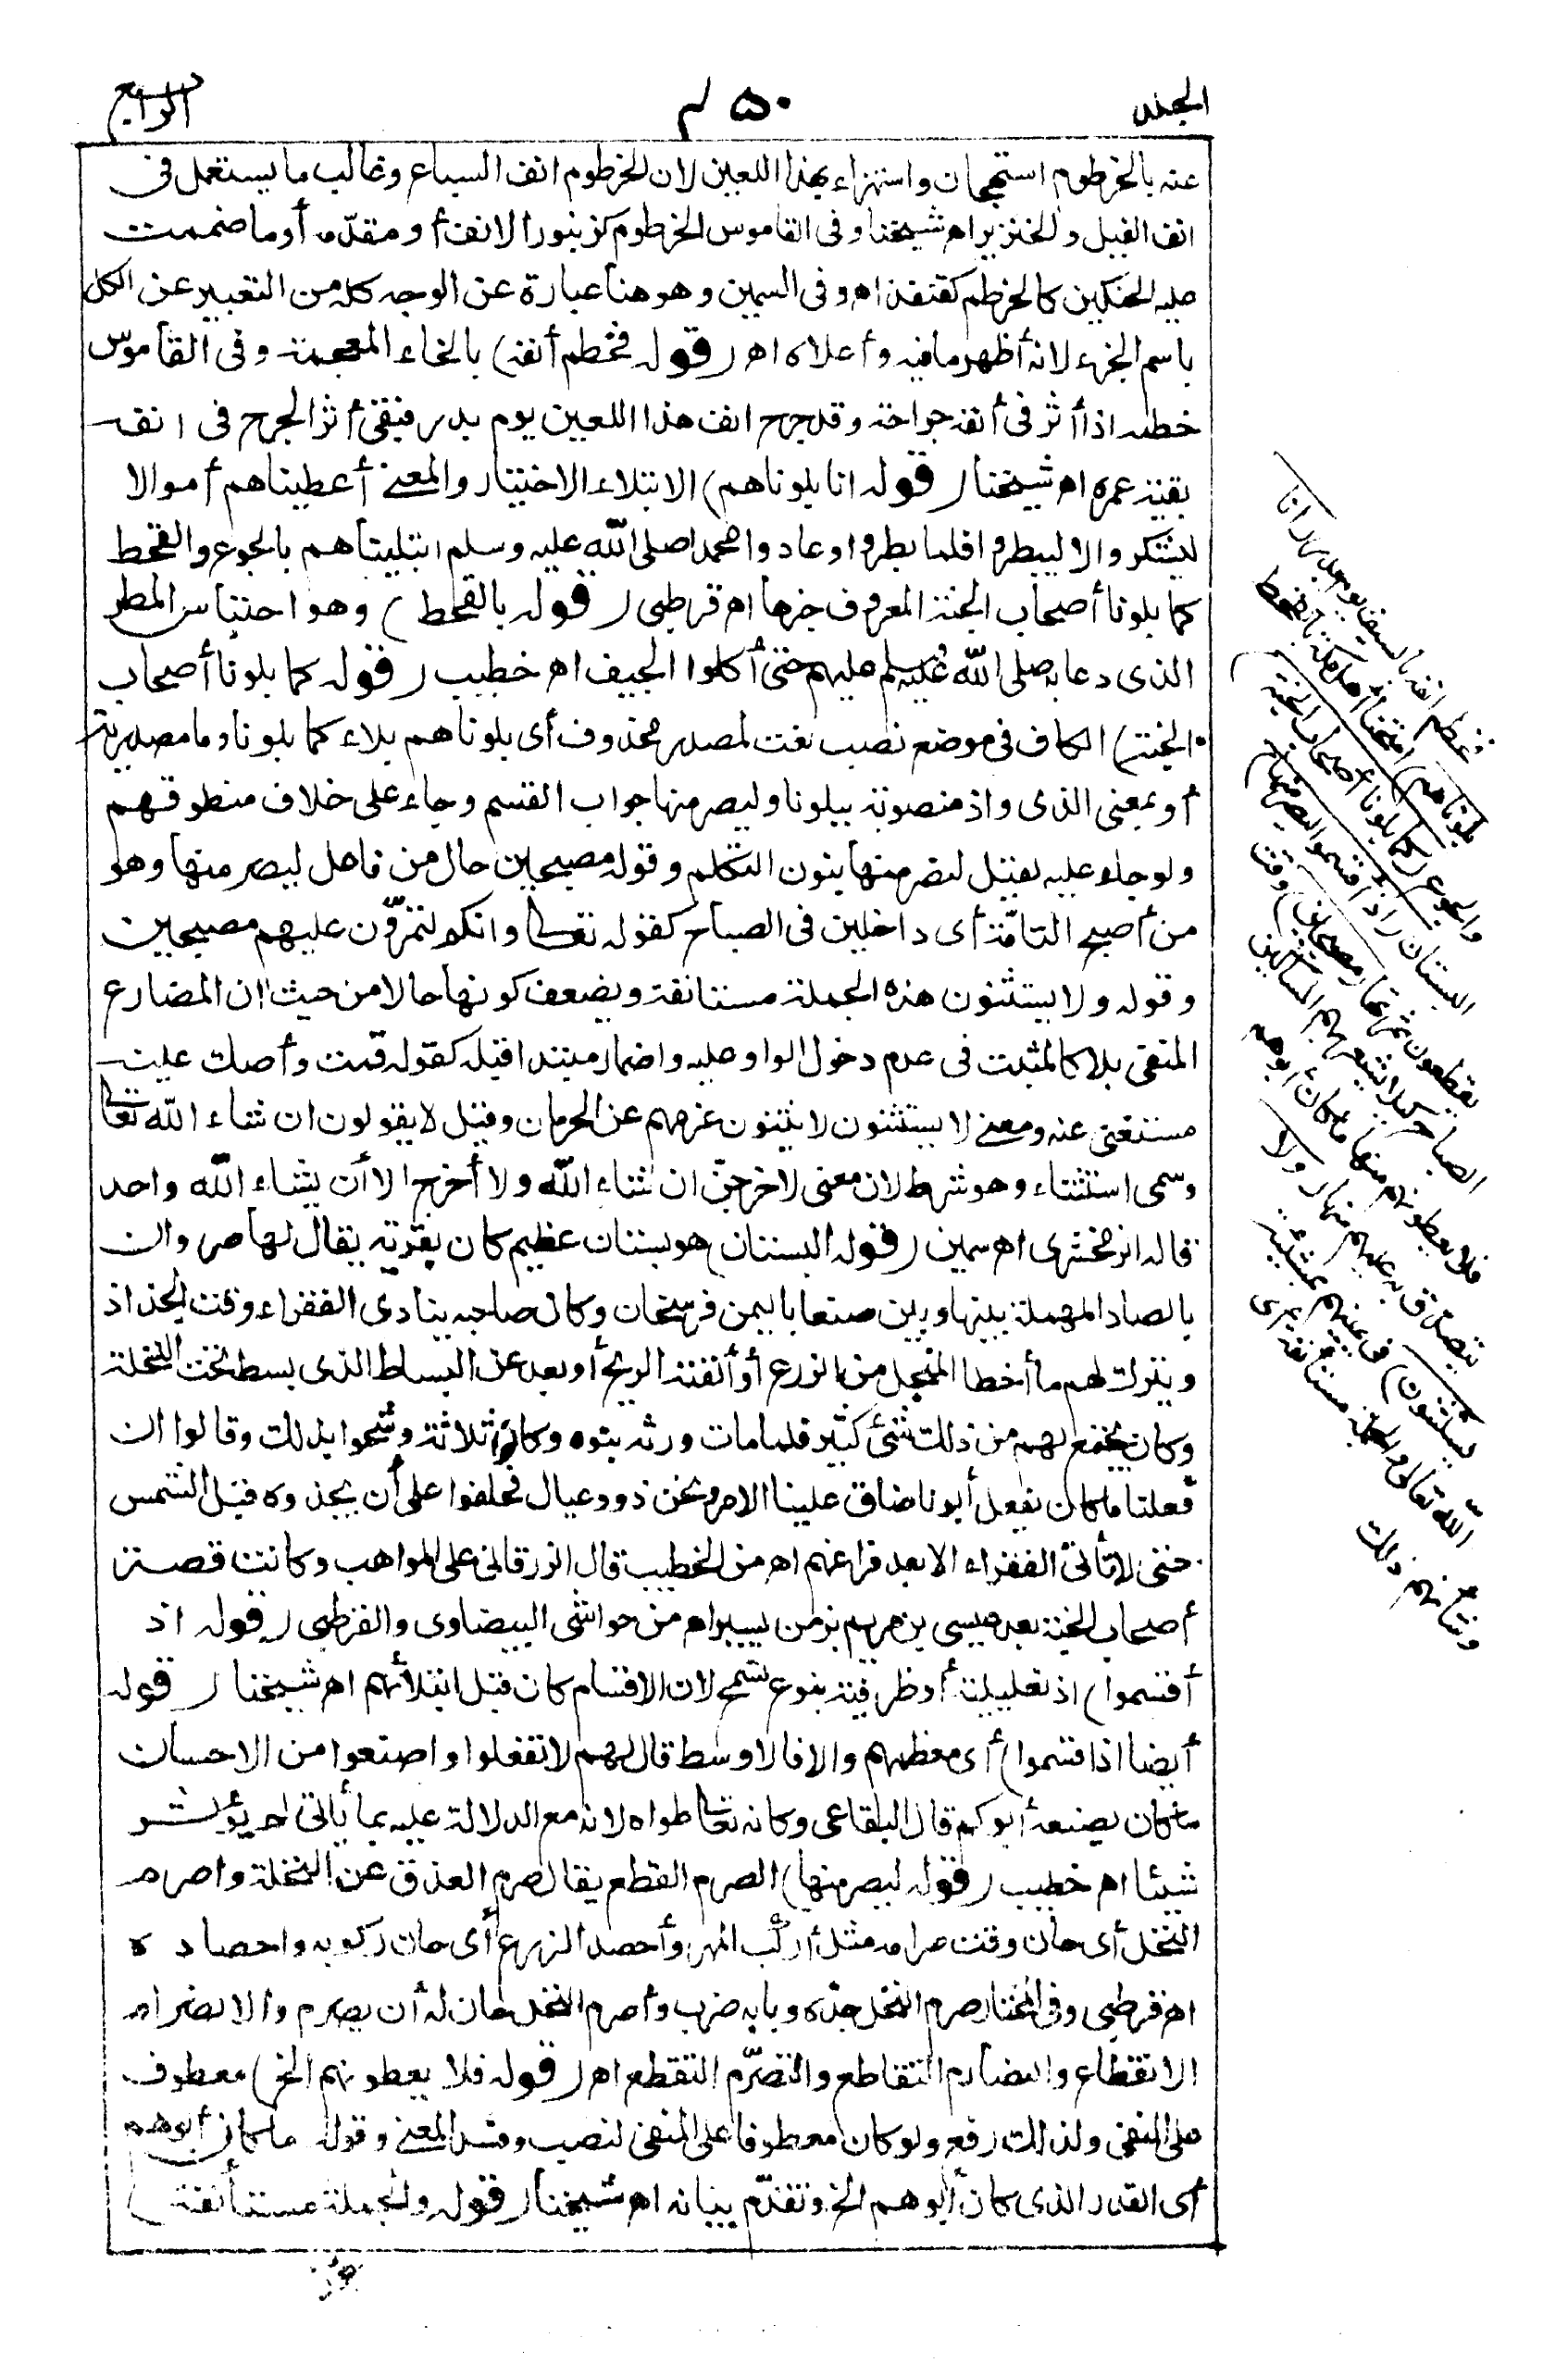 الجلد
٤٥٠
الرابع
عنه بالخرطوم استهجان واستهزاء بهذا اللعين لان الخرطوم انف السباع وغالب ما يستعمل فى
انف الفيل والخنزير اه شيخنا وفى القاموس الخرطوم كزنبور الانف أو مقدّمه أو ما ضممت
عليه الحنكين كالخرطم كقنفذ اه وفى السمين وهو هنا عبارة عن الوجه كله من التعبير عن الكل
باسم الجزء لانه أظهر ما فيه وأعلاه اه (قوله فخطم أنفه) بالخاء المعجمة وفى القاموس
خطمه اذا أثر فى أنفه جراحة وقد جرح انف هذا اللعين يوم بدر فبقى أثر الجرح فى انفه
بقية عمره اه شيخنا (قوله انا بلوناهم) الابتلاء الاختبار والمعنى أعطيناهم أموالا
ليشكروا لا ليبطروا فلما بطروا وعادوا محمدا صلى الله عليه وسلم ابتليناهم بالجوع والقحط
كما بلونا أصحاب الجنة المعروف خبرها اه قرطبى (قوله بالقحط) وهو احتباس المطر
الذى دعا به صلى الله عليه وسلم عليهم حتى أكلوا الجيف اه خطيب (قوله كما بلونا أصحاب
الجنة) الكاف فى موضع نصب نعت لمصدر محذوف أى بلوناهم بلاء كما بلونا وما مصدرية
أو بمعنى الذى واذ منصوبة ببلونا وليصرمنها جواب القسم وجاء على خلاف منطوقهم
ولو جاء عليه لقيل لنصرمنها بنون التكلم وقوله مصبحين حال من فاعل ليصرمنها وهو
من أصبح التامّة أى داخلين فى الصباح كقوله تعالى وانكم لتمرّون عليهم مصبحين
وقوله ولا يستثنون هذه الجملة مستانفة ويضعف كونها حالا من حيث ان المضارع
المنفى بلا كالمثبت فى عدم دخول الواو عليه واضمار مبتدا قبله كقوله قمت وأصك عينه
مستغنى عنه ومعنى لا يستثنون لا يثنون عزمهم عن الحرمان وقيل لا يقولون ان شاء الله تعالى
وسمى استثناء وهو شرط لان معنى لاخرجنّ ان شاء الله ولا أخرج الا أن يشاء الله واحد
قاله الزمخشرى اه سمين (قوله البستان) هو بستان عظيم كان بقرية يقال لها صروان
بالصاد المهملة بينها وبين صنعا باليمن فرسخان وكان صاحبه ينادى الفقراء وقت الجذاذ
ويترك لهم ما أخطا المنجل من الزرع أو ألقته الريح أو بعد عن البساط الذى يبسط تحت النخلة
وكان يجتمع لهم من ذلك شئ كثير فلما مات ورثه بنوه وكانوا ثلاثة وشحوا بذلك وقالوا ان
فعلنا ما كان يفعل أبونا ضاق علينا الامر ونحن ذوو عيال فحلفوا على أن يجذوه قبل الشمس
حتى لا تأتى الفقراء الا بعد فراغهم اه من الخطيب قال الزرقانى على المواهب وكانت قصة
أصحاب الجنة بعد عيسى بن مريم بزمن يسير اه من حواشى البيضاوى والقرطبى (قوله اذ
أقسموا) اذ تعليلية أو ظرفية بنوع تسمح لان الاقسام كان قبل ابتلائهم اه شيخنا (قوله
أيضا اذ اقسموا) أى معظمهم والا فالاوسط قال لهم لا تفعلوا واصنعوا من الاحسان
ما كان يصنعه أبوكم قال البقاعى وكانه تعالى طواه لانه مع الدلالة عليه بما يأتى لم يؤثر
شيئا اه خطيب (قوله ليصرمنها) الصرم القطع يقال صرم العذق عن النخلة واصرم
النخل أى حان وقت صرامه مثل أركب المهر وأحصد الزرع أى حان ركوبه واحصاده
اه قرطبى وفى المختار صرم النخل جذه وبابه ضرب وأصرم النخل حان له أن يصرم والانصرام
الانقطاع والتصارم التقاطع والتصرّم التقطع اه (قوله فلا يعطونهم الخ) معطوف
على النفى ولذلك رفع ولو كان معطوفا على المنفى لنصب وفسد المعنى وقوله ما كان أبوهم
أى القدر الذى كان أبوهم الخ وتقدّم بيانه اه شيخنا (قوله والجملة مستأنفة)
فخطم انفه بالسيف يوم بدر (انا
بلوناهم) امتحنا أهل مكة بالقحط
والجوع (كما بلونا أصحاب الجنة)
البستان (اذ أقسموا ليصرمنها)
يقطعون ثمرتها (مصبحين) وقت
الصباح كيلا يشعر بهم المساكين
فلا يعطونهم منها ما كان أبوهم
يتصدّق به عليهم منها (ولا
يستثنون) فى يمينهم بمشيئة
الله تعالى والجملة مستانفة أى
وشأنهم ذلك